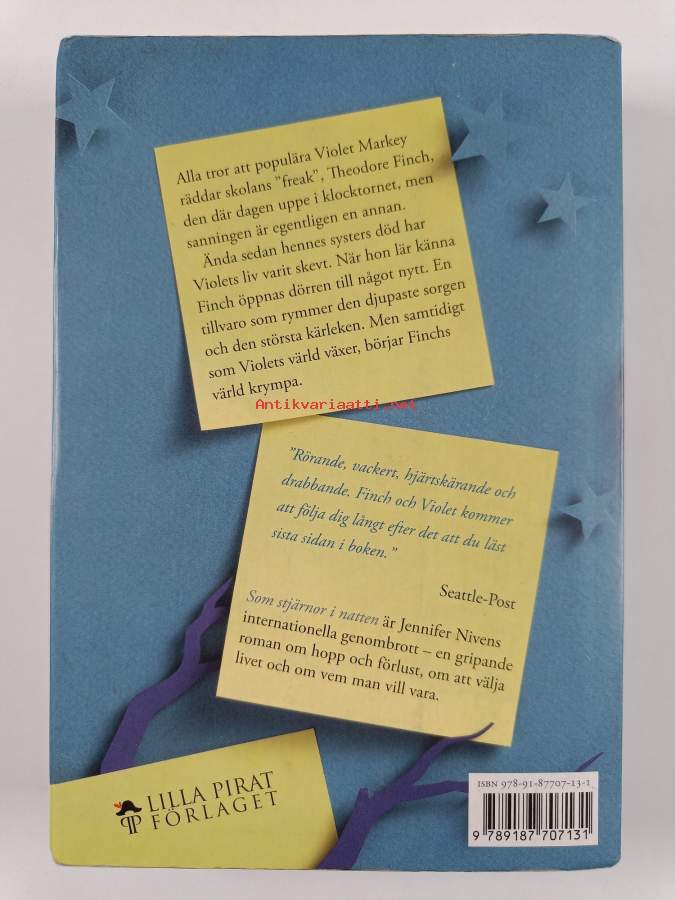 Alla tror att populära Violet Markey
räddar skolans "freak", Theodore Finch,
den där dagen uppe i klocktornet, men
sanningen är egentligen en annan.
Ända sedan hennes systers död har
Violets liv varit skevt. När hon lär känna
Finch öppnas dörren till något nytt. En
tillvaro som rymmer den djupaste sorgen
och den största kärleken. Men samtidigt
som Violets värld växer, börjar Finchs
värld krympa.
Antikvariaatti.net
"Rörande, vackert, hjärtskärande och
drabbande. Finch och Violet kommer
att följa dig långt efter det att du läst
sista sidan i boken."
Seattle-Post
Som stjärnor i natten är Jennifer Nivens
internationella genombrott – en gripande
roman om hopp och förlust, om att välja
livet och om vem man vill vara.
LILLA PIRAT
FÖRLAGET
ISBN 978-91-87707-13-1
9 789187 707131